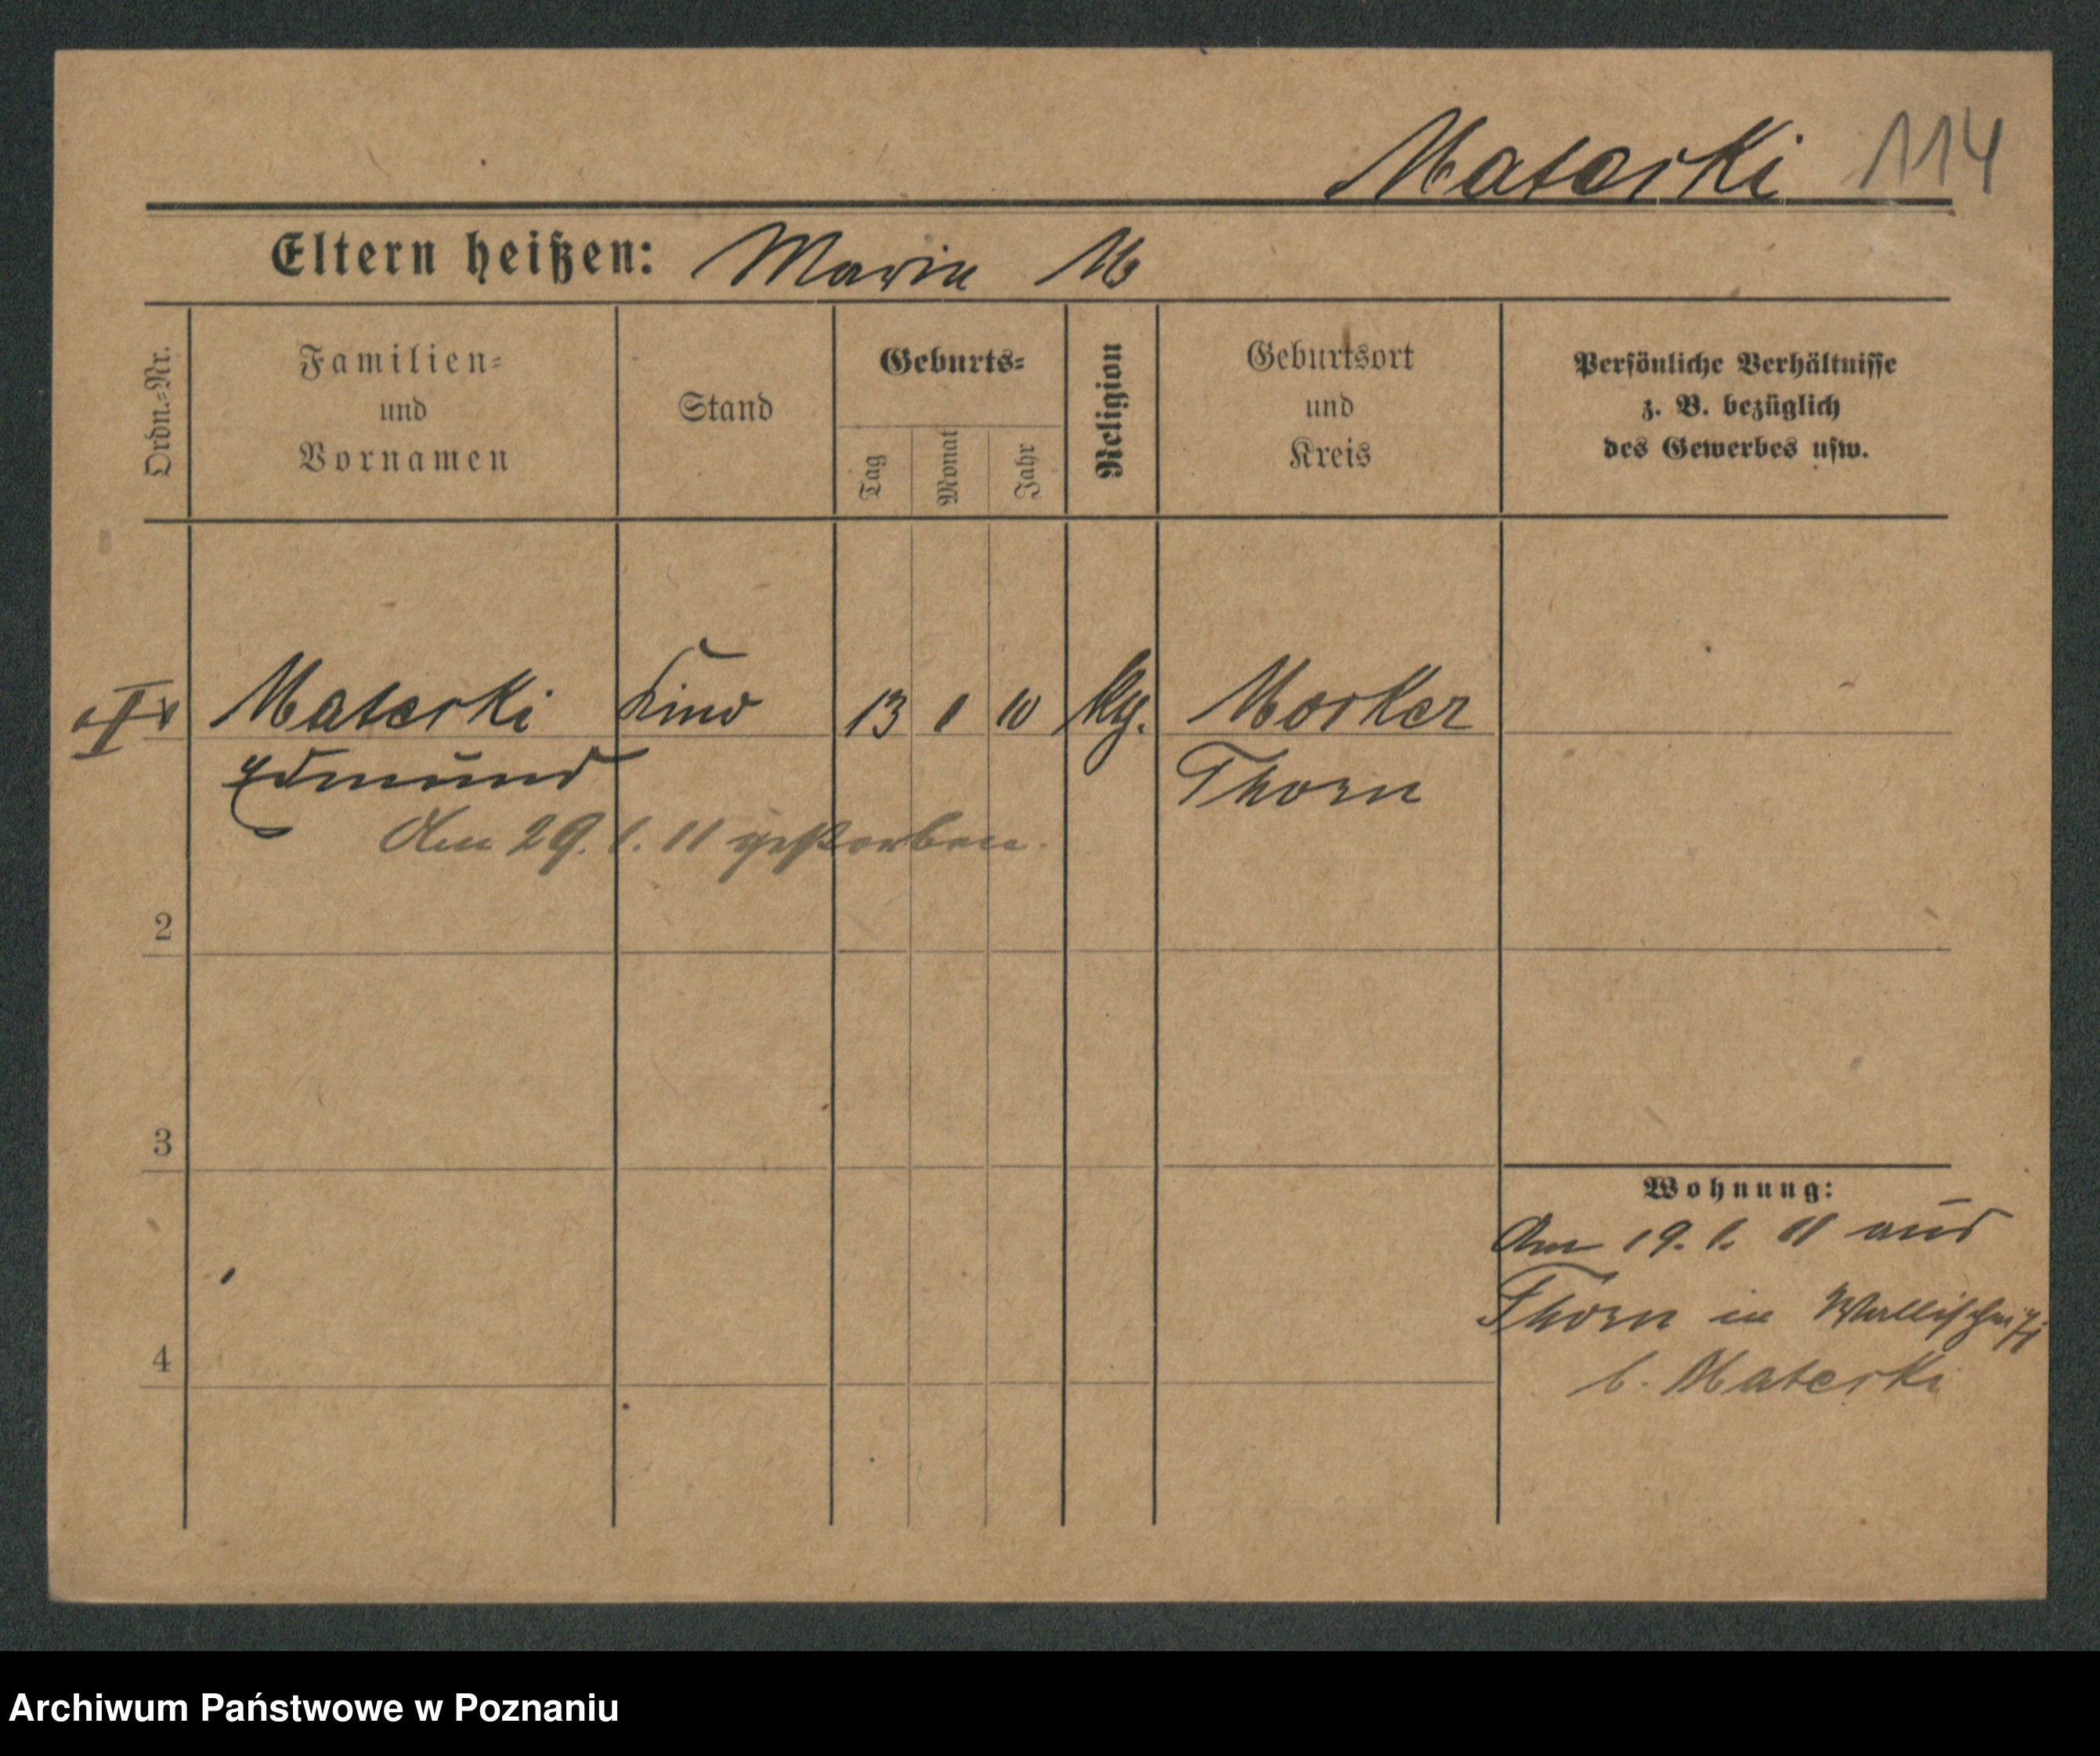 Materski 114
Eltern heißen: Maria M
Ordn.-Nr.
Familien-
und
Vornamen
Stand
Geburts-
Tag
Monat
Jahr
Religion
Geburtsort
und
Kreis
Persönliche Verhältnisse
z. B. bezüglich
des Gewerbes usw.
Materski Kind 13 1 10 kg. Mocker
Edmund Thorn
Am 29. 1. 11 gestorben.
2
3
4
Wohnung:
Am 19. 1. 11 aus
Thorn in
b. Materski
Archiwum Państwowe w Poznaniu